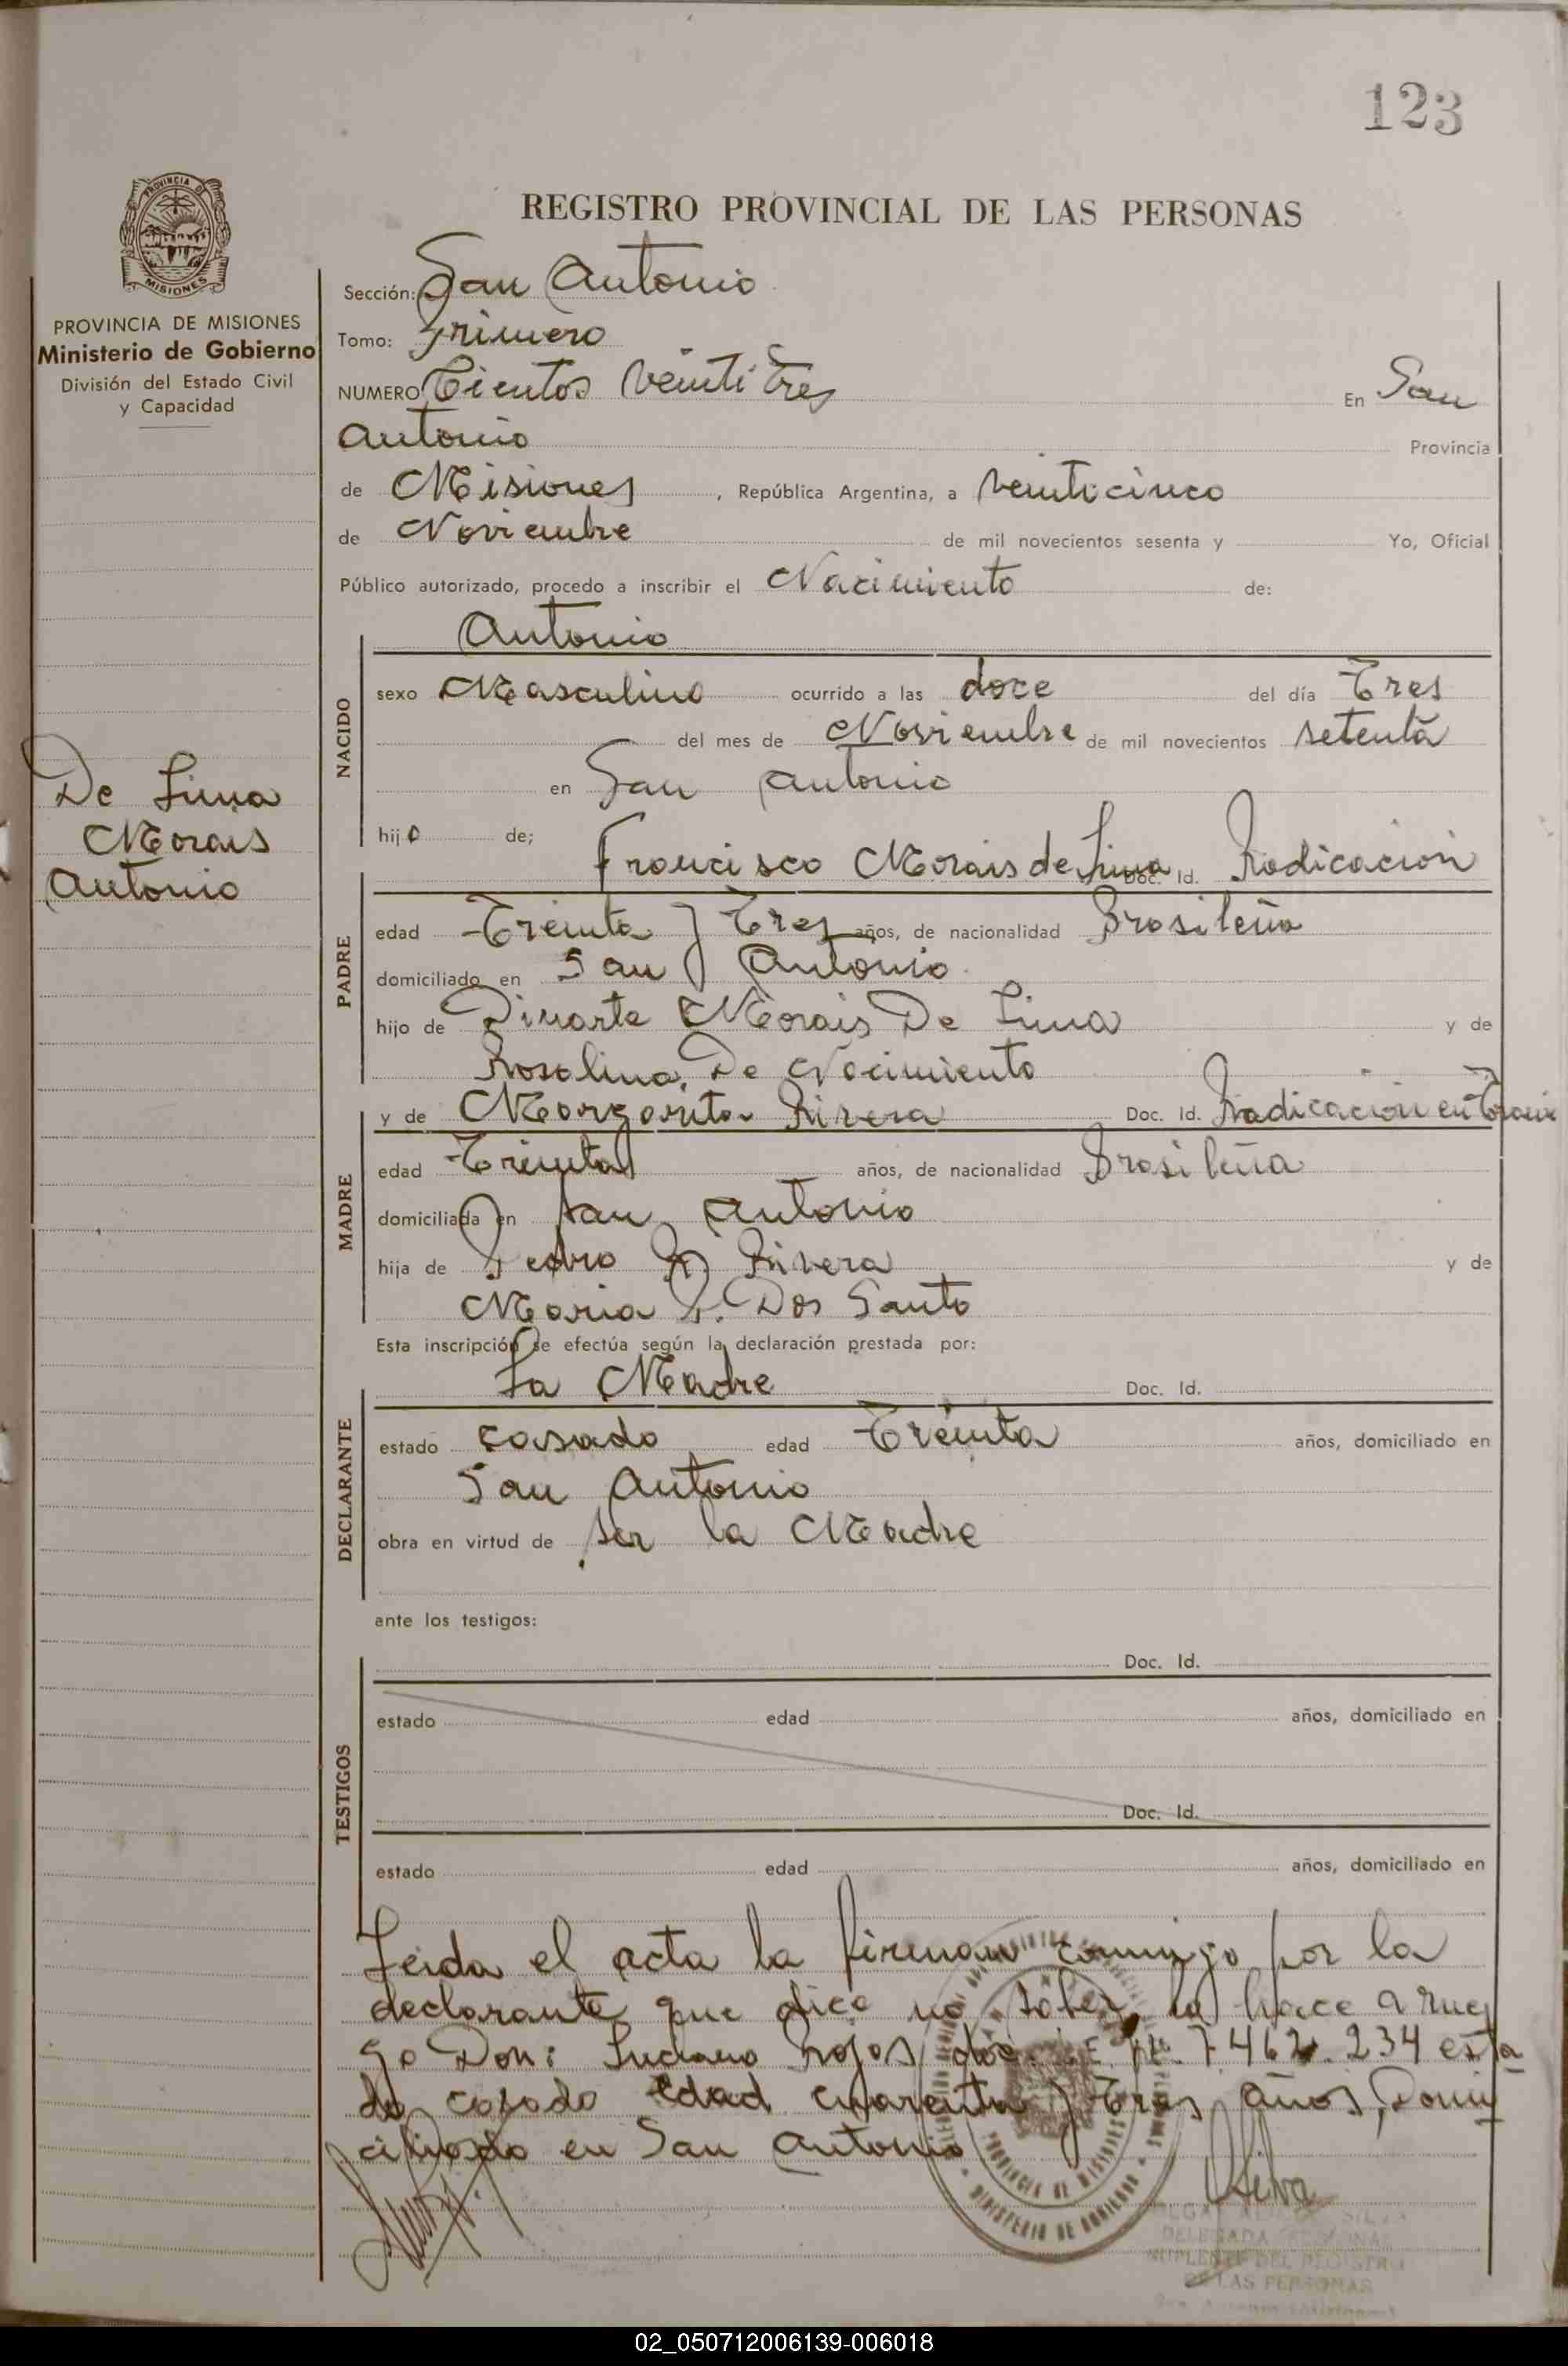 123
REGISTRO PROVINCIAL DE LAS PERSONAS
PROVINCIA DE MISIONES
PROVINCIA DE MISIONES
Ministerio de Gobierno
División del Estado Civil
y Capacidad
De Lima
Morais
Antonio
Sección: San Antonio
Tomo: Primero
NUMERO Cientos veinti tres En San
Antonio Provincia
de Misiones, República Argentina, a veinticinco
de Noviembre de mil novecientos sesenta y Yo, Oficial
Público autorizado, procedo a inscribir el Nacimiento de:
Antonio
NACIDO
sexo Masculino ocurrido a las doce del día Tres
del mes de Noviembre de mil novecientos setenta
en San Antonio
hijo de;
Francisco Morais de Lima Doc. Id. Radicacion
PADRE
edad Treinta y Tres años, de nacionalidad Brasileña
domiciliado en San Antonio
hijo de Dinarte Morais De Lima y de
Rosalina De Nacimiento
y de Margarita Rivera Doc. Id. Radicacion en
MADRE
edad Treinta años, de nacionalidad Brasileña
domiciliada en San Antonio
hija de Pedro Rivera y de
Maria Dos Santo
Esta inscripción se efectúa según la declaración prestada por:
La Madre Doc. Id.
DECLARANTE
estado casado edad Treinta años, domiciliado en
San Antonio
obra en virtud de ser la Madre
ante los testigos:
Doc. Id.
TESTIGOS
estado edad años, domiciliado en
Doc. Id.
estado edad años, domiciliado en
Leida el acta la firman conmigo por la
declarante que dice no saber lo hace a rue
go Don: Luciano Rojas doc. 7.462.234 esta
do casado edad cuarenta y Tres años, Domi
ciliado en San Antonio
Silva
PROVINCIA DE MISIONES
MINISTERIO DE GOBIERNO
DELEGADA
SUPLENTE DEL REGISTRO
DE LAS PERSONAS
02_050712006139-006018